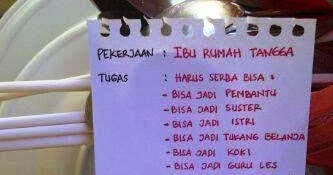 PEKERJAAN : IBU RUMAH TANGGA
TUGAS : HARUS SERBA BISA :
- BISA JADI PEMBANTU
- BISA JADI SUSTER
- BISA JADI ISTRI
- BISA JADI TUKANG BELANJA
- BISA JADI KOKI
- BISA JADI GURU LES